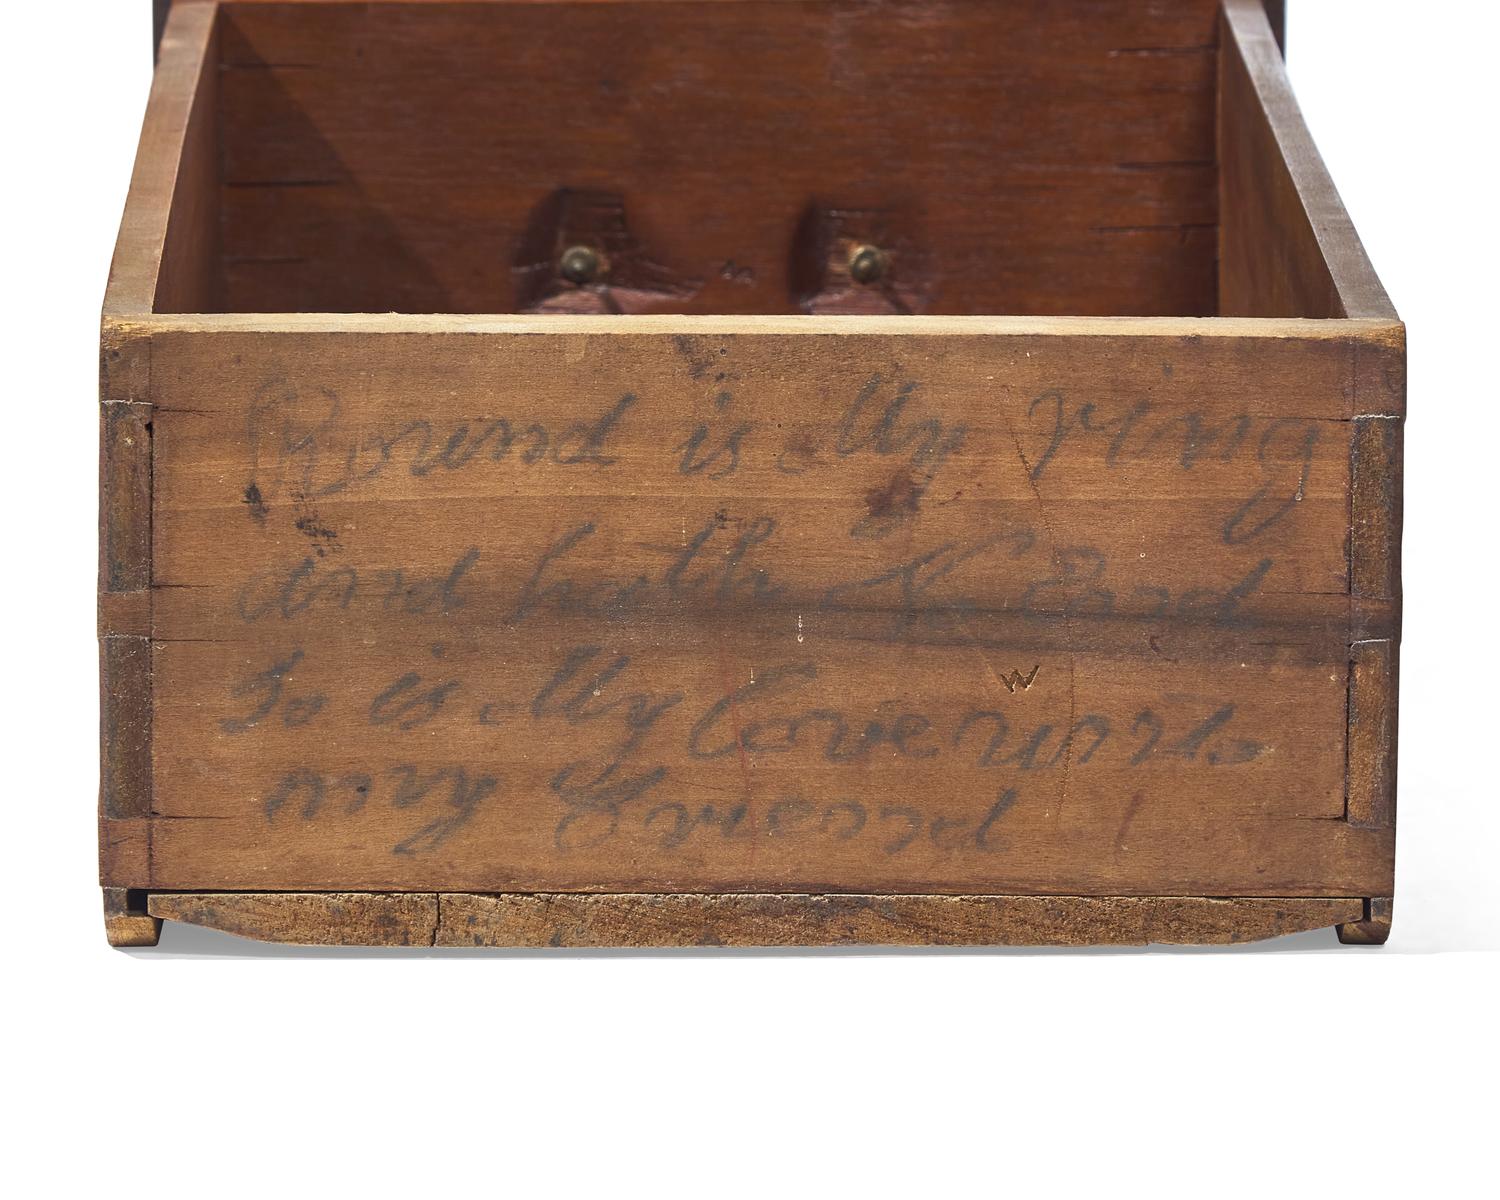 Round is My ring
and hath No End
So is My Love unto
my Freend
W